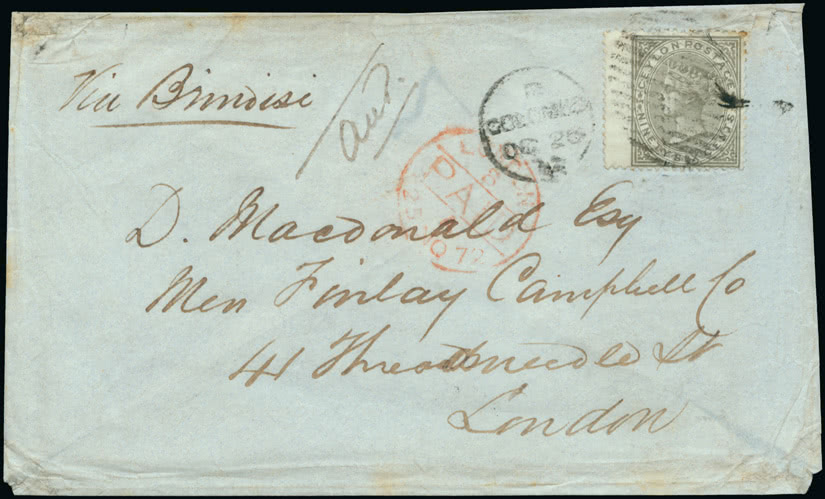 Via Brindisi
CEYLON POSTAGE
COLOMBO
OC 25
PAID
72
D. Macdonald Esq
Mess Finlay Campbell Co
41 Threadneedle St
London